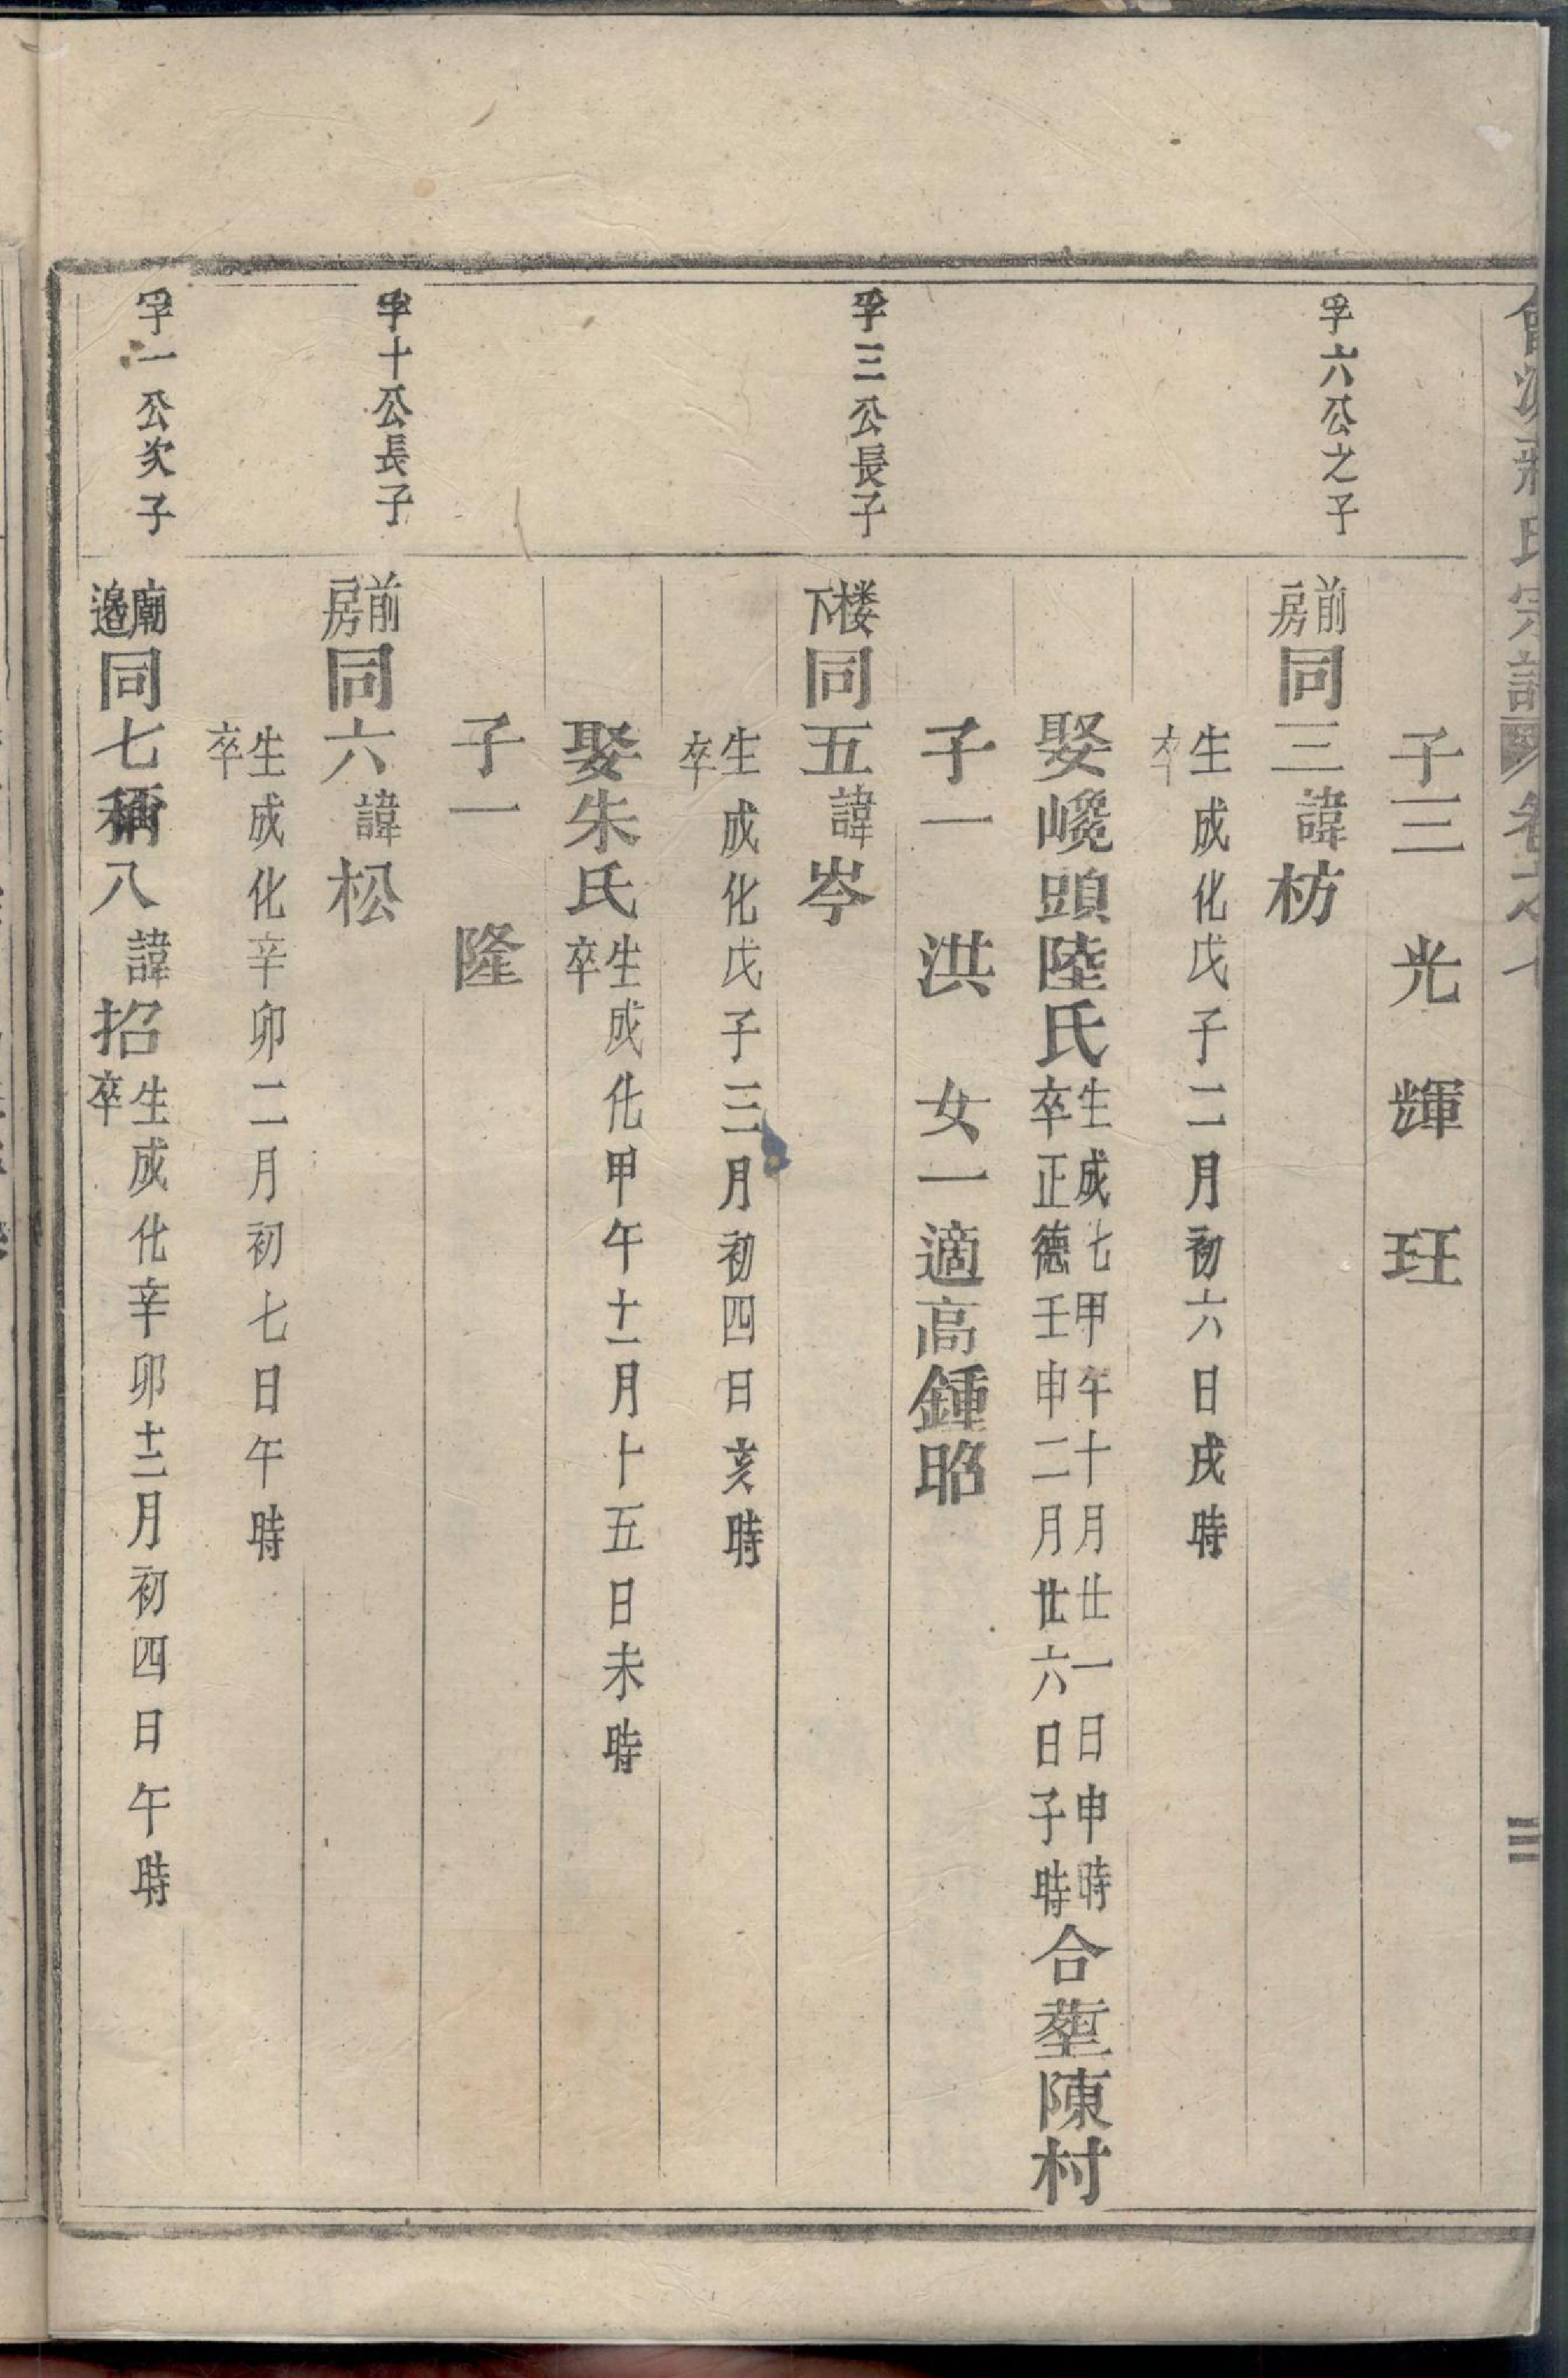 氏宗譜
三
子三 光 輝 玨
孚六公之子
前房同三諱枋
生成化戊子二月初六日戌時
卒
娶巉頭陸氏生成七甲午十月廿一日申時卒正德壬申二月廿六日子時合塟陳村
子一 洪 女一適高鍾昭
孚三公長子
楼下同五諱岑
生成化戊子三月初四日亥時
卒
娶朱氏生成化甲午十一月十五日未時卒
子一 隆
孚十公長子
前房同六諱松
生成化辛卯二月初七日午時
卒
孚一公次子
廟邉同七稱八諱招生成化辛卯十二月初四日午時卒